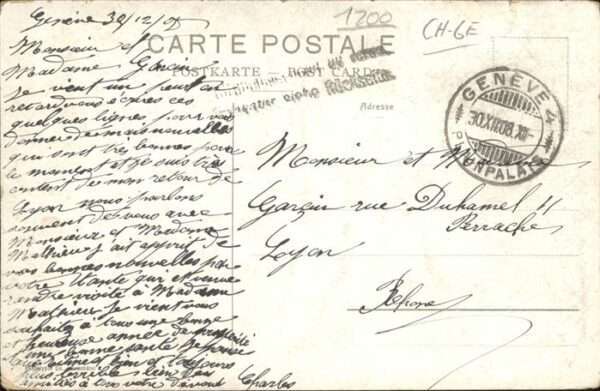 Genève 30/12/08
Monsieur et
Madame Garcin
Je vient un peut en
retard vous écrires ces
quelques lignes pour vous
donner de mais nouvelles
qui sont très bonnes pour
le moment et je suis très
content de mon retour de
Lyon nous parlons
souvent de vous avec
Monsieur et Madame
Mathieu j ait apprit de
vos bonnes nouvelles par
votre tante qui est venue
rendre visite à Madame
Mathieu Je vient vous
souhaiter à tous une bonne
et heureuse année de prospérité
une bonne santé
bien et toujours
à tous votre dévoué
Charles
1200
CH-GE
CARTE POSTALE
POSTKARTE - POST CARD
Adresse
RÜCKSEITE
GENÈVE 4
30.XII.08.XII
PLAINPALAIS
Monsieur et Madame
Garcin rue Duhamel 11
Perrache
Lyon
Rhone